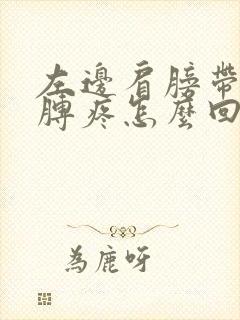 左邊肩膀帶
膊疼怎麼回
為鹿呀